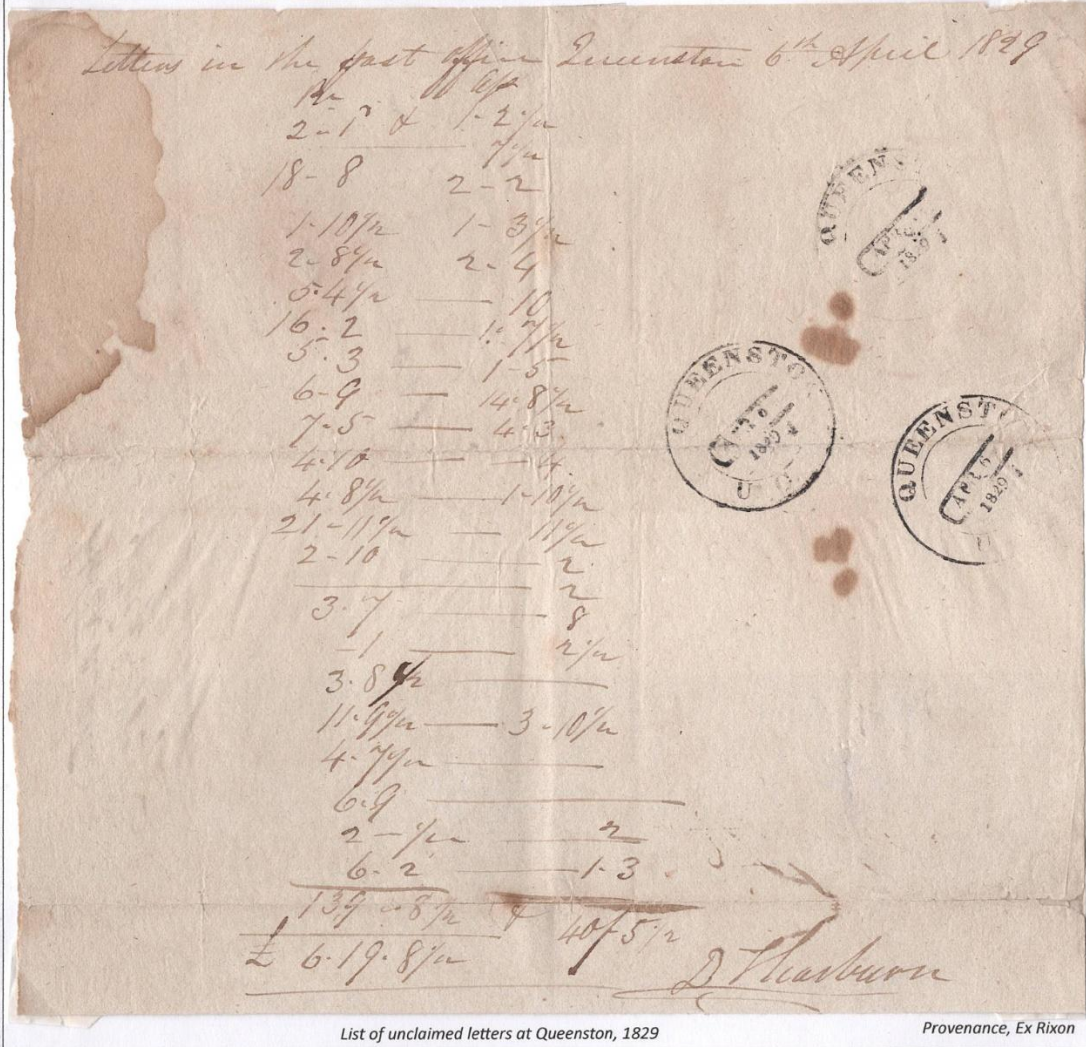 Letters in the post office Queenston 6th April 1829
2-1 & 1-2 1/2
7 1/2
18-8 2-2
1-10 1/2 1-3 1/2
2-8 1/2 2-4
5-4 1/2 — 10
16-2 — 1-7 1/2
5-3 — 1-5
6-9 — 14-8 1/2
7-5 — 4-3
4-10 — 4
4-8 1/2 — 1-10 1/2
21-11 1/2 — 11 1/2
2-10 — 2
2
3-7 — 8
-1 — 2 1/2
3-8 1/2 —
11-9 1/2 — 3-10 1/2
4-7 1/2 —
6-9 —
2-1/2 — 2
6-2 — 1-3
139-8 1/2 & 40/-5 1/2
£ 6-19-8 1/2
QUEENS
APL 6
1829
QUEENSTO
1829
U C
QUEENSTO
APL 6
1829
List of unclaimed letters at Queenston, 1829
Provenance, Ex Rixon